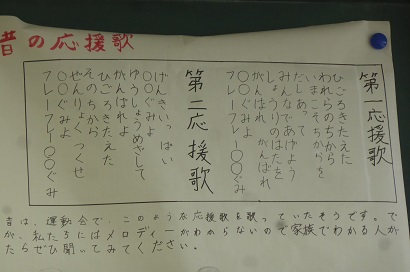 昔の応援歌
第一応援歌
ひごろきたえた
われらのちからを
いまこそちからを
だしあって
みんなであげよう
しょうりのはたを
がんばれ がんばれ
フレーフレー〇〇ぐみ
第二応援歌
げんきいっぱい
〇〇ぐみよ
ゆうしょうめざして
がんばれよ
ひごろきたえた
そのちから
ぜんりょくつくせ
〇〇ぐみよ
フレーフレー〇〇ぐみ
昔は、運動会で、このような応援歌を歌っていたそうです。で
が、私たちにはメロディーがわからないので家族でわかる人が
たらぜひ聞いてみてください。